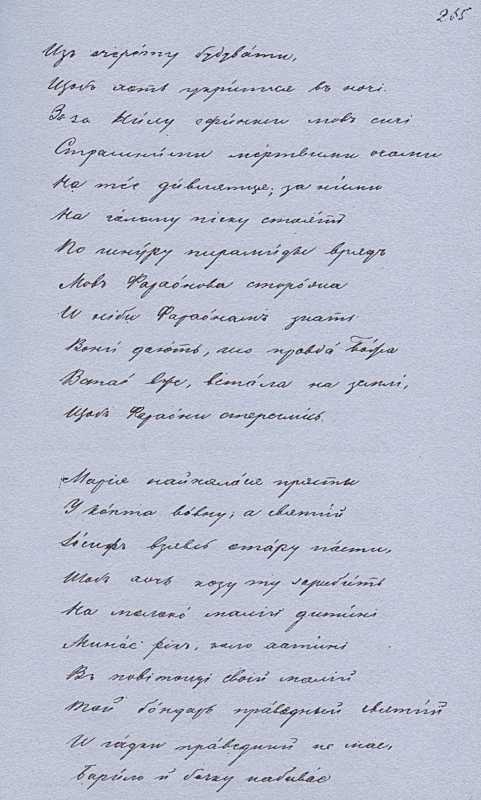 255
Изъ очере́ту будува́ти,
Щобъ хоть укри́тися въ ночі.
Зъ за Ні́лу сфи́нкси мовъ сичі
Страшни́ми ме́ртвими очами
На те́е ди́вляться; за ни́ми
На го́лому піску стоя́ть
По шну́ру пирами́ды врядъ
Мовъ Фарао́нова сторо́жа
И ніби Фарао́намъ знать
Вони́ даю́ть, що правда́ Бо́жа
Встае́ вже, вста́ла на землі,
Щобъ Фарао́ни стереглись.
Марія найняла́ся прясты
У ко́пта во́вну; а святи́й
Іо́сифъ взявсь ота́ру па́сти,
Щобъ хочъ козу ту зароби́ть
На молоко́ малі́й дити́ні
Мина́е рікъ, коло хати́ні
Въ пові́точці своі́й малі́й
Той бо́ндарь пра́ведный святи́й
И га́дки пра́ведний не мае,
Бари́ло й бочку набива́е